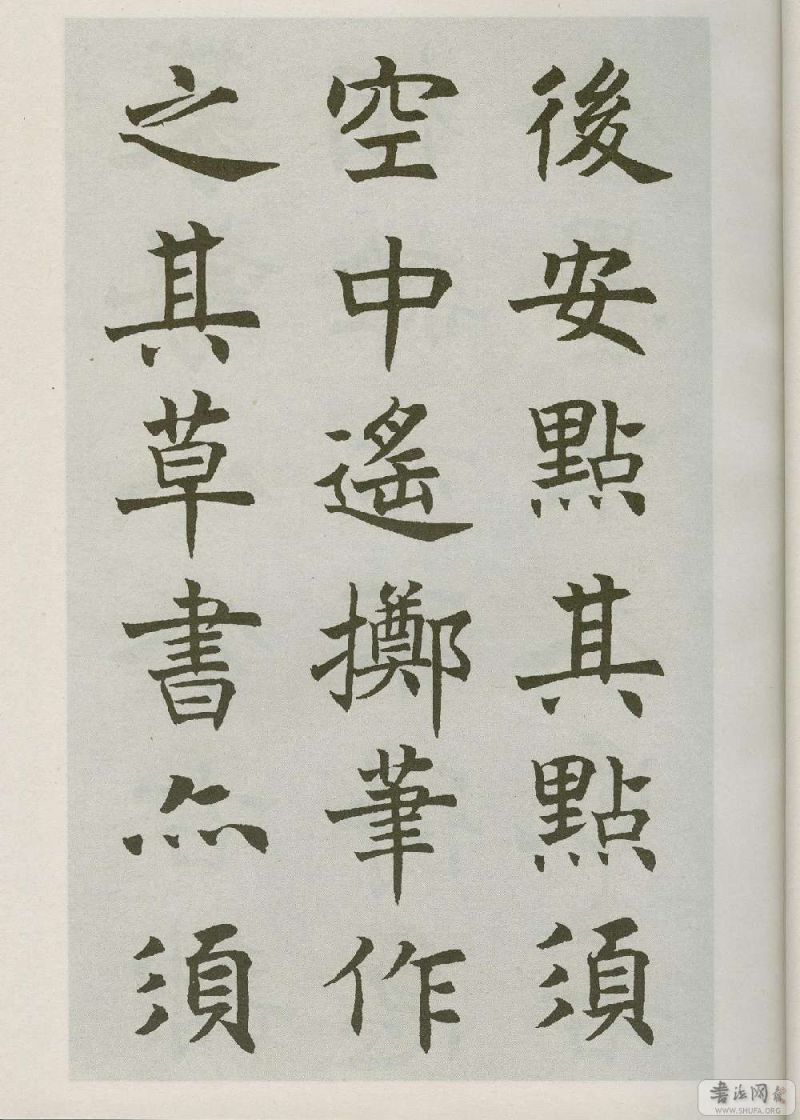 後安點其點須
空中遙擲筆作
之其草書亦須
書法网
WWW.SHUFA.ORG